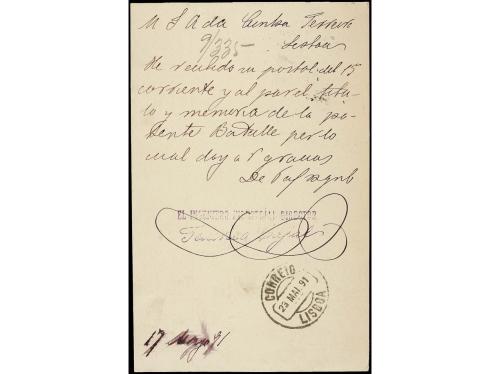 M S A da Cunha Ferreira
Lisboa
9/335-
He recibido su postal del 15
corriente y al par el títu-
lo y memoria de la pa-
tente Batalle por lo
cual doy a V gracias
De V af s s q b
EL INGENIERO INDUSTRIAL DIRECTOR
CORREIO
23 MAI. 91
LISBOA
17 Mayo 91